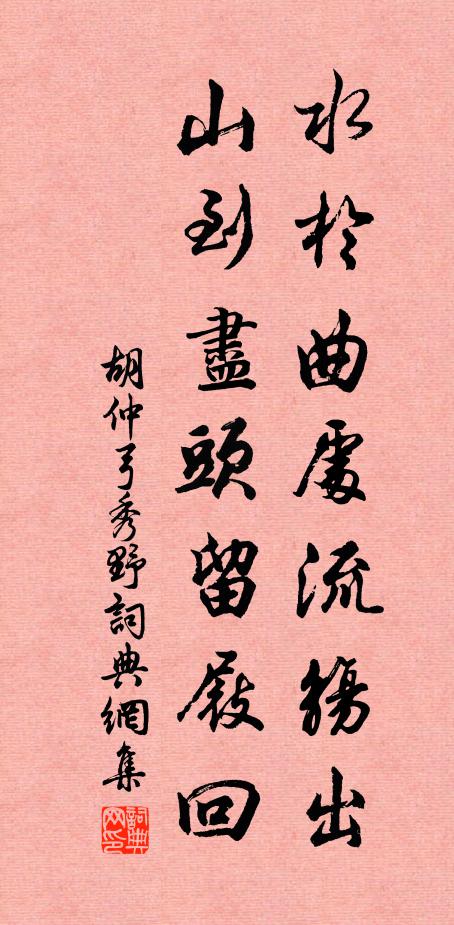 水於曲處流觴出
山到盡頭留屐回
胡仲弓秀野詞典網集
詞典网印